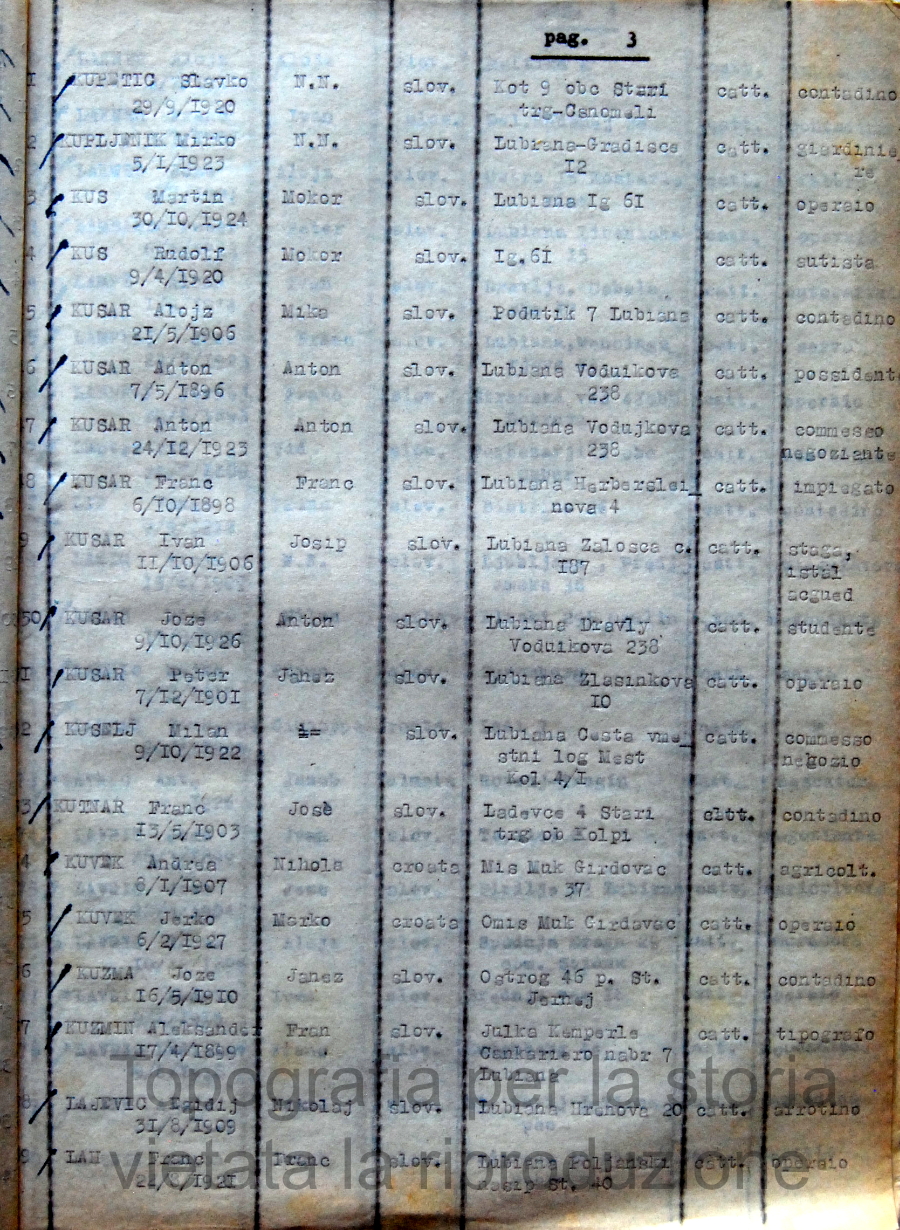 pag. 3
1 KUPETIC Slavko N.N. slov. Kot 9 obc Stari catt. contadino
29/9/I920 trg-Canomeli
2 KUPLJENIK Mirko N.N. slov. Lubiana-Gradisce catt. giardinie
5/I/I923 I2 re
3 KUS Martin Mokor slov. Lubiana Ig 6I catt. operaio
30/IO/I924
4 KUS Rudolf Mokor slov. Ig.6I catt. autista
9/4/I920
5 KUSAR Alojz Miha slov. Podutik 7 Lubiana catt. contadino
2I/5/I906
6 KUSAR Anton Anton slov. Lubiana Voduikova catt. possident
7/5/I896 238
7 KUSAR Anton Anton slov. Lubiana Vodujkova catt. commesso
24/I2/I923 238 negoziante
8 KUSAR Franc Franc slov. Lubiana Herberslei_ catt. impiegato
6/IO/I898 nova 4
9 KUSAR Ivan Josip slov. Lubiana Zalosca c. catt. stagn,
II/IO/I906 I87 istal
acqued
50 KUSAR Joze Anton slov. Lubiana Dravly catt. studente
9/IO/I926 Voduikova 238
1 KUSAR Peter Janez slov. Lubiana Zlasinkova catt. operaio
7/I2/I90I IO
2 KUSELJ Milan slov. Lubiana Cesta vme_ catt. commesso
9/IO/I922 stni log Mest negozio
Kol 4/I
3 KUTNAR Franc Josè slov. Ladevce 4 Stari catt. contadino
I3/5/I903 trg ob Kolpi
4 KUVEK Andrea Nihola croata Mis Muk Girdovac catt. agricolt.
6/I/I907 37
5 KUVEK Jerko Marko croata Omis Muk Girdavac catt. operaio
6/2/I927
6 KUZMA Joze Janez slov. Ostrog 46 p. St. catt. contadino
I6/5/I9IO Jernej
7 KUZMIN Aleksander Fran slov. Julka Kemperle catt. tipografo
I7/4/I899 Cankariero nabr 7
Lubiana
8 LAJEVIC Egidij Nikolaj slov. Lubiana Hrenova 20 catt. arrotino
3I/8/I909
9 LAH Franc Franc slov. Lubiana Poljanski catt. operaio
/I92I St. 40
Topografia per la storia
vietata la riproduzione